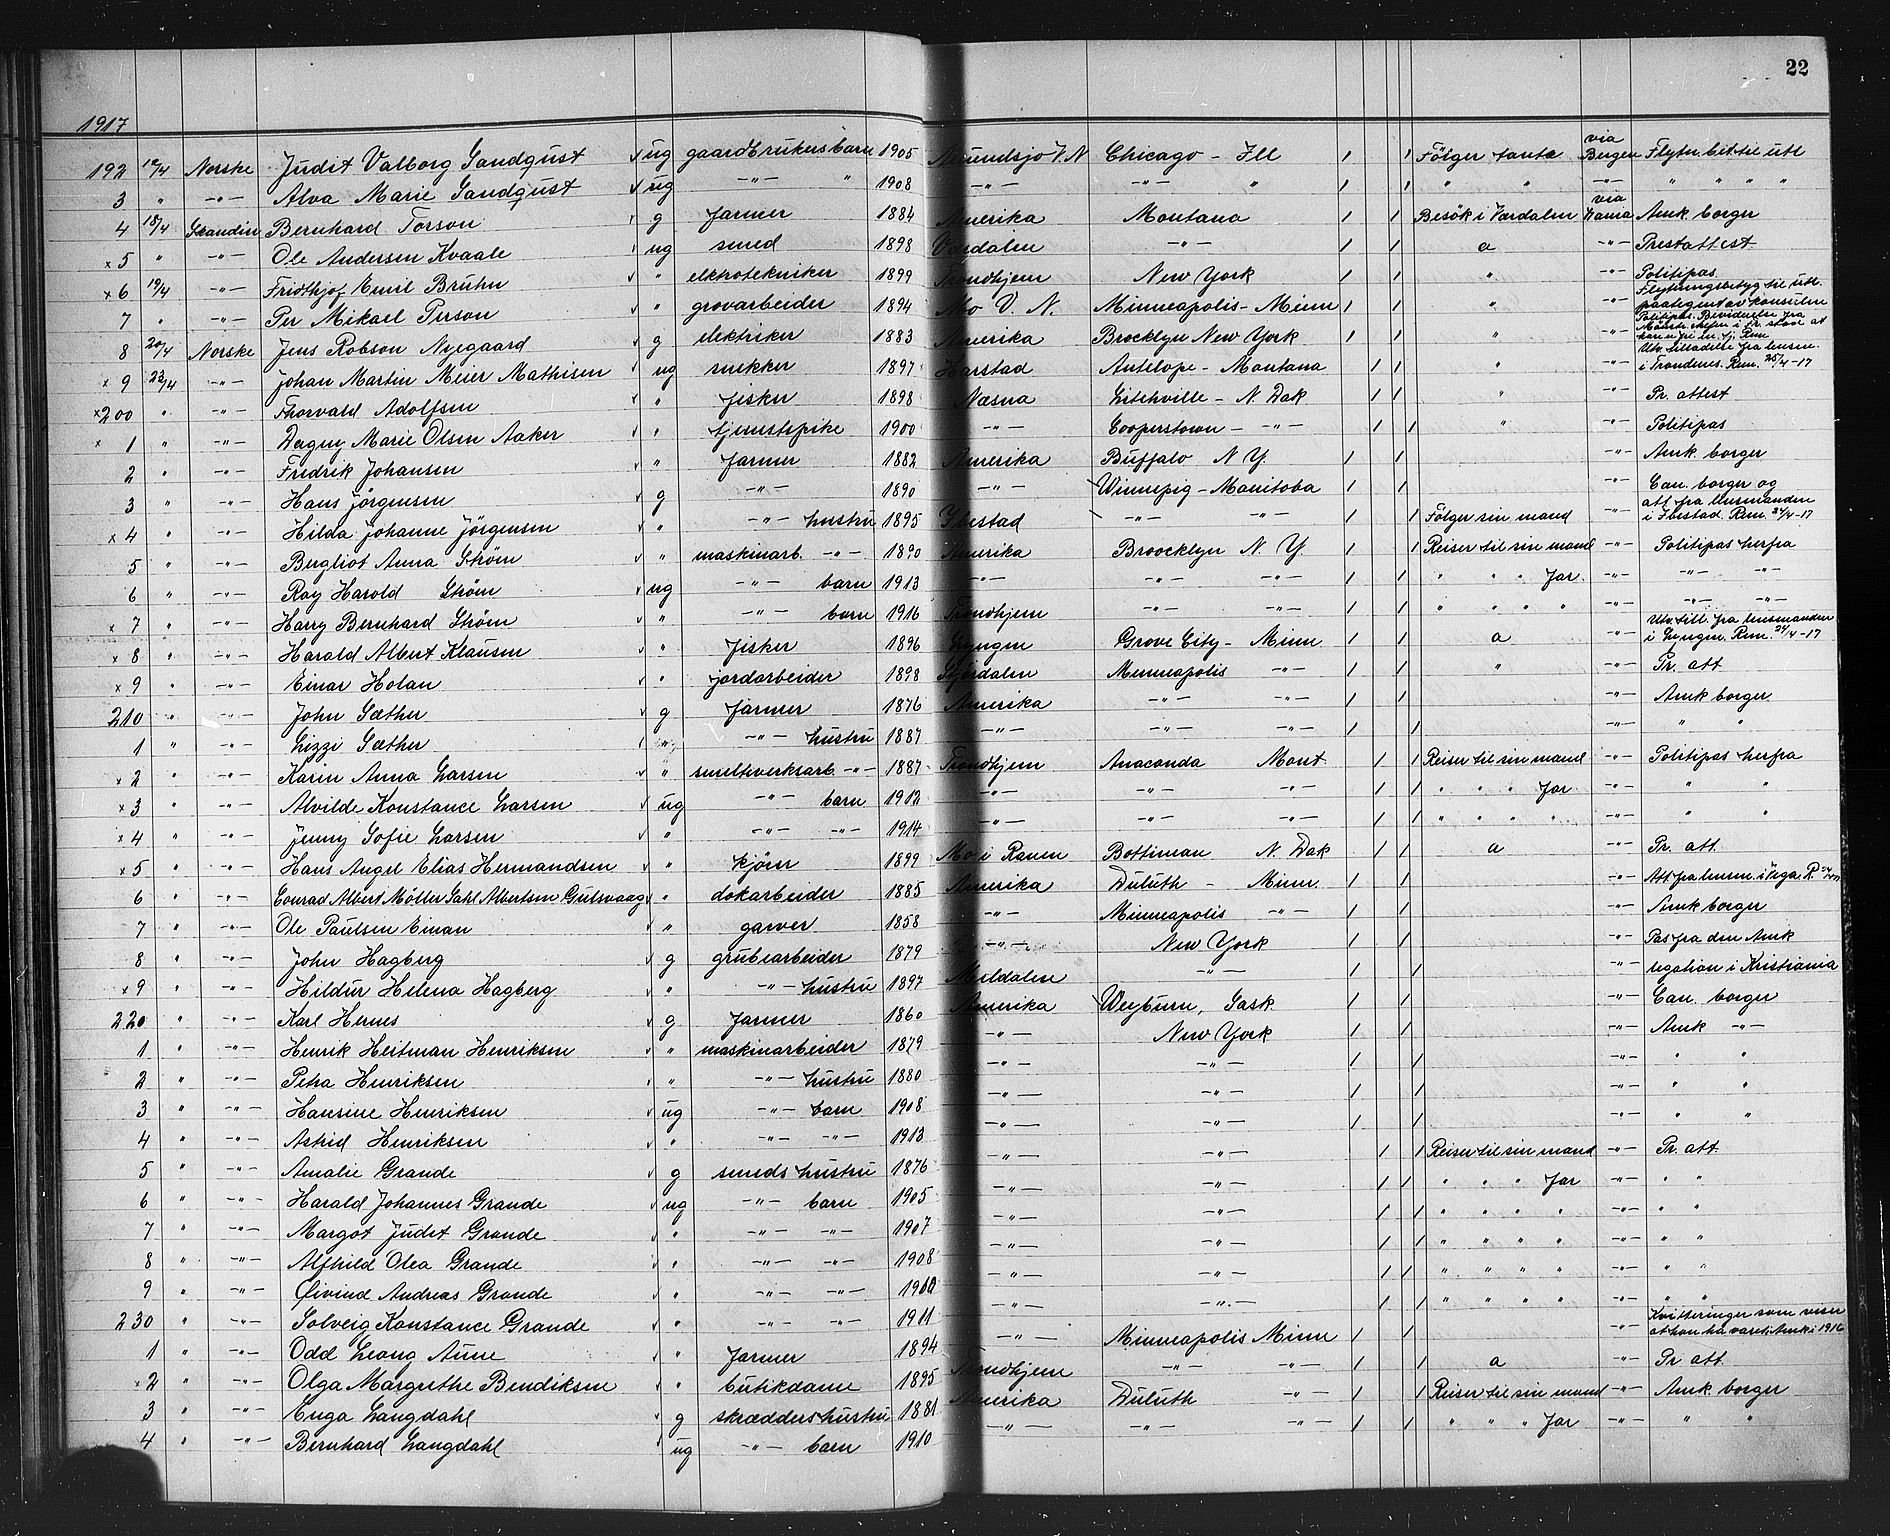 22
1917
192 12/4 Norske Judit Valborg Sandqust v ug gaardbrukers barn 1905 Chicago - Ill / / Følger tante via Bergen Flytn. bet. til utl
3 " -"- Alva Marie Sandqust v ug -"- " 1908 -"- -"- " / / " " -"- " " " "
4 18/4 Skandin Bernhard Torson v g farmer 1884 Amerika Montana / / Besøk i Værdalen via Kania Amk borger
x 5 " -"- Ole Andersen Kvaale v ug smed 1898 Værdalen -"- / / a -"- Prestattest
x 6 19/4 -"- Fridthjof Emil Bruhn v " elektrotekniker 1899 Trondhjem New York / / " -"- Politipas
7 " -"- Per Mikael Person " grovarbeider 1894 Mo V. N. Minneapolis - Minn / / " -"- Flytningsbetyg til utl. paategnet av konsulen
8 20/4 Norske Jens Robson Nyegaard v g elektriker 1883 Amerika Brocklyn New York / / " -"- Politipas. Bevidnelse fra
x 9 23/4 -"- Johan Martin Meier Mathisen v ug snekker 1897 Harstad Antelope - Montana / / " -"- Utv. tilladelse fra lensm. i Trondenes. Rem. 25/4-17
x 200 " -"- Thorvald Adolfsen v " fisker 1898 Næsna Litchville - N. Dak / / " -"- Pr. attest
x 1 " -"- Dagny Marie Olsen Aaker v " tjenestepike 1900 -"- Cooperstown - -"- / / " -"- Politipas
2 " -"- Fredrik Johansen v " farmer 1882 Amerika Buffalo N Y. / / -"- Amk. borger
3 " -"- Hans Jørgensen v g -"- 1890 -"- Winnepig - Manitoba / / -"- Can. borger og
x 4 " -"- Hilda Johanne Jørgensen v " -"- hustru 1895 Ibestad -"- -"- / / Følger sin mand -"- att. fra lensmanden i Ibestad. Rem. 24/4-17
5 " -"- Bergliot Anna Strøm v " maskinarb. -"- 1890 Amerika Broocklyn N. Y. / / Reiser til sin mand -"- Politipas herfra
6 " -"- Ray Harold Strøm v ug -"- barn 1913 -"- -"- -"- / / " " " far. -"- -"- -"-
x 7 " -"- Harry Bernhard Strøm v " -"- barn 1916 Trondhjem -"- -"- / / " " " " -"- -"- -"-
x 8 " -"- Harald Albert Klausen v " fisker 1896 Lyngen Grove City - Minn / / a -"- Utv. till. fra lensmanden i Lyngen. Rem. 24/4-17
x 9 " -"- Einar Holan v " jordarbeider 1898 Stjørdalen Minneapolis -"- / / " -"- Pr. att
210 " -"- John Sæther v g farmer 1876 Amerika -"- -"- / / -"- Amk borger
1 " -"- Lizzi Sæther v " -"- hustru 1887 -"- -"- -"- / / -"- " "
x 2 " -"- Karin Anna Larsen v " smelteverksarb. -"- 1887 Trondhjem Anaconda Mont / / Reiser til sin mand -"- Politipas herfra
x 3 " -"- Alvilde Konstance Larsen v ug -"- barn 1912 -"- -"- -"- / / " " " far -"- " "
x 4 " -"- Jenny Sofie Larsen v " -"- -"- 1914 -"- -"- -"- / / " " " " -"- " "
x 5 " -"- Hans Angel Elias Hermandsen v " kjører 1899 Mo i Ranen Bottineau N. Dak / / a -"- Pr. att
6 " -"- Conrad Albert Møller Dahl Albertsen Gulsvaag v " dokarbeider 1885 Amerika Duluth - Minn. / / -"- Att. fra lensm. i Vega R.
7 " -"- Ole Paulsen Einan v " garver 1858 -"- Minneapolis -"- / / -"- Amk borger
8 " -"- John Hagberg v g grubearbeider 1879 -"- New York / / -"- Pas fra den Amk
x 9 " -"- Hildur Helena Hagberg v " -"- hustru 1897 Meldalen -"- / / -"- legation i Kristiania
220 " -"- Karl Hernes v g farmer 1860 Amerika Weyburn, Sask. / / -"- Can. borger
1 " -"- Henrik Heitman Henriksen v " maskinarbeider 1879 -"- New York / / -"- Amk -"-
2 " -"- Petra Henriksen v " -"- hustru 1880 -"- -"- / / -"- " "
3 " -"- Hansine Henriksen v ug -"- barn 1908 -"- -"- / / -"- " "
4 " -"- Astrid Henriksen v " -"- -"- 1913 -"- -"- / / -"- " "
5 " -"- Amalie Grande v g smeds hustru 1876 -"- -"- / / Reiser til sin mand -"- Pr. att.
6 " -"- Harald Johannes Grande v ug -"- barn 1905 -"- -"- / / " " " far -"- " "
7 " -"- Margot Judit Grande v " -"- -"- 1907 -"- -"- / / " " " " -"- " "
8 " -"- Alfhild Olea Grande v " -"- -"- 1908 -"- -"- / / " " " " -"- " "
9 " -"- Øivind Andreas Grande v " -"- -"- 1910 -"- -"- / / " " " " -"- " "
230 " -"- Solveig Konstance Grande v " -"- -"- 1911 -"- -"- / / " " " " -"- " "
1 " -"- Odd Leang Aune v " farmer 1894 -"- Minneapolis Minn / / -"- Kvitteringer som viser at han ha været i Amk i 1916
x 2 " -"- Olga Margrethe Bendiksen v " butikdame 1895 Trondhjem -"- -"- / / a -"- Pr att
3 " -"- Enga Langdahl v g skrædders hustru 1881 Amerika Duluth -"- / / Reiser til sin mand -"- Amk borger
4 " -"- Bernhard Langdahl v ug -"- barn 1910 -"- -"- -"- / / " " " far -"- " "